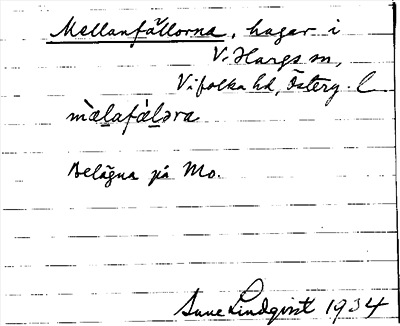 Mellanfållorna, hagar i
V. Hargs sn,
Vifolka hd, Österg. l
mæ̀lafål̀əra
Belägna på Mo.
Sune Lindqvist 1934